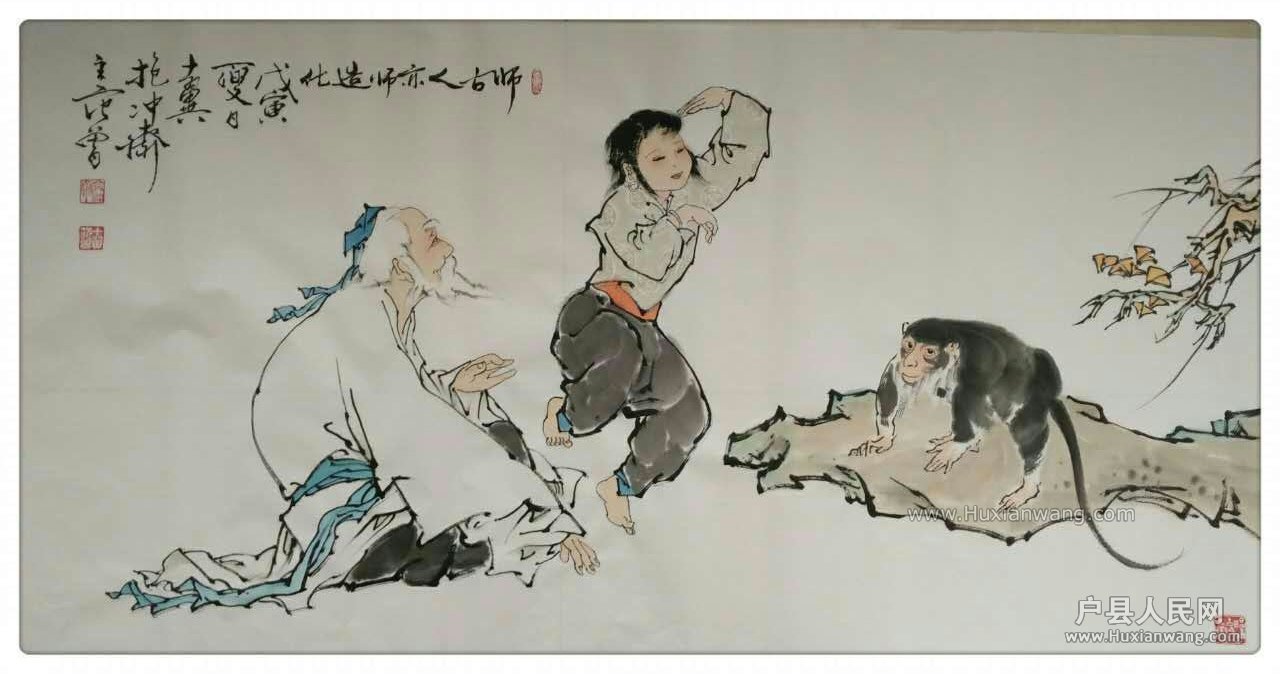 师古人亦师造化
戊寅
夏月
十翼
抱冲斋
主范曾
www.Huxianwang.com
户县人民网
www.Huxianwang.com